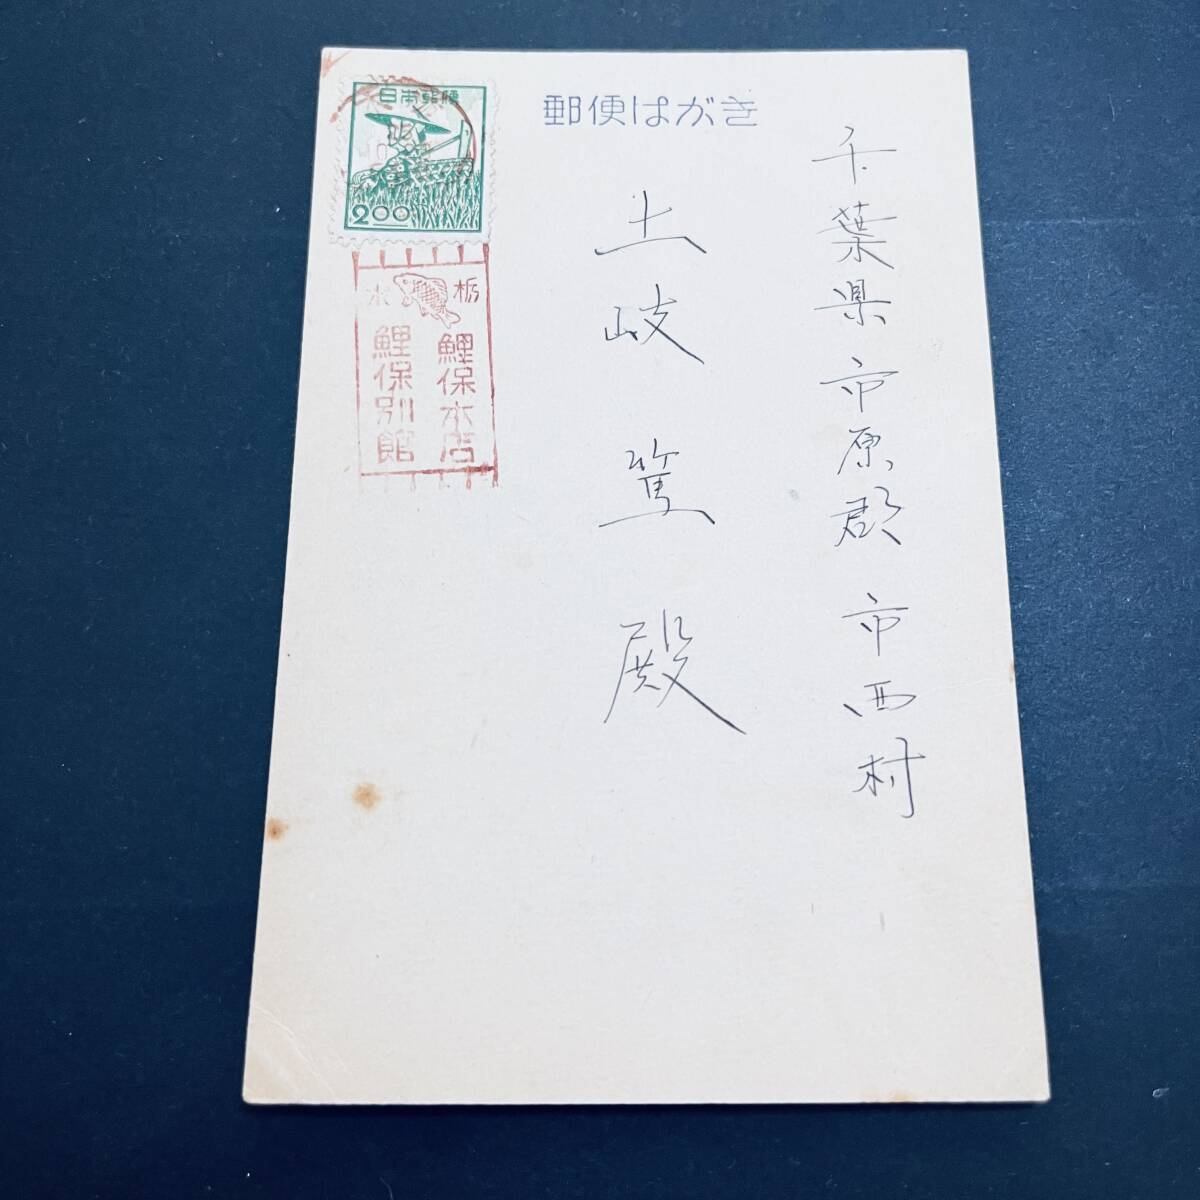 郵便はがき
千葉県市原郡市西村
土岐篤殿
日本郵便
2.00
栃木
鯉保本店
鯉保別館